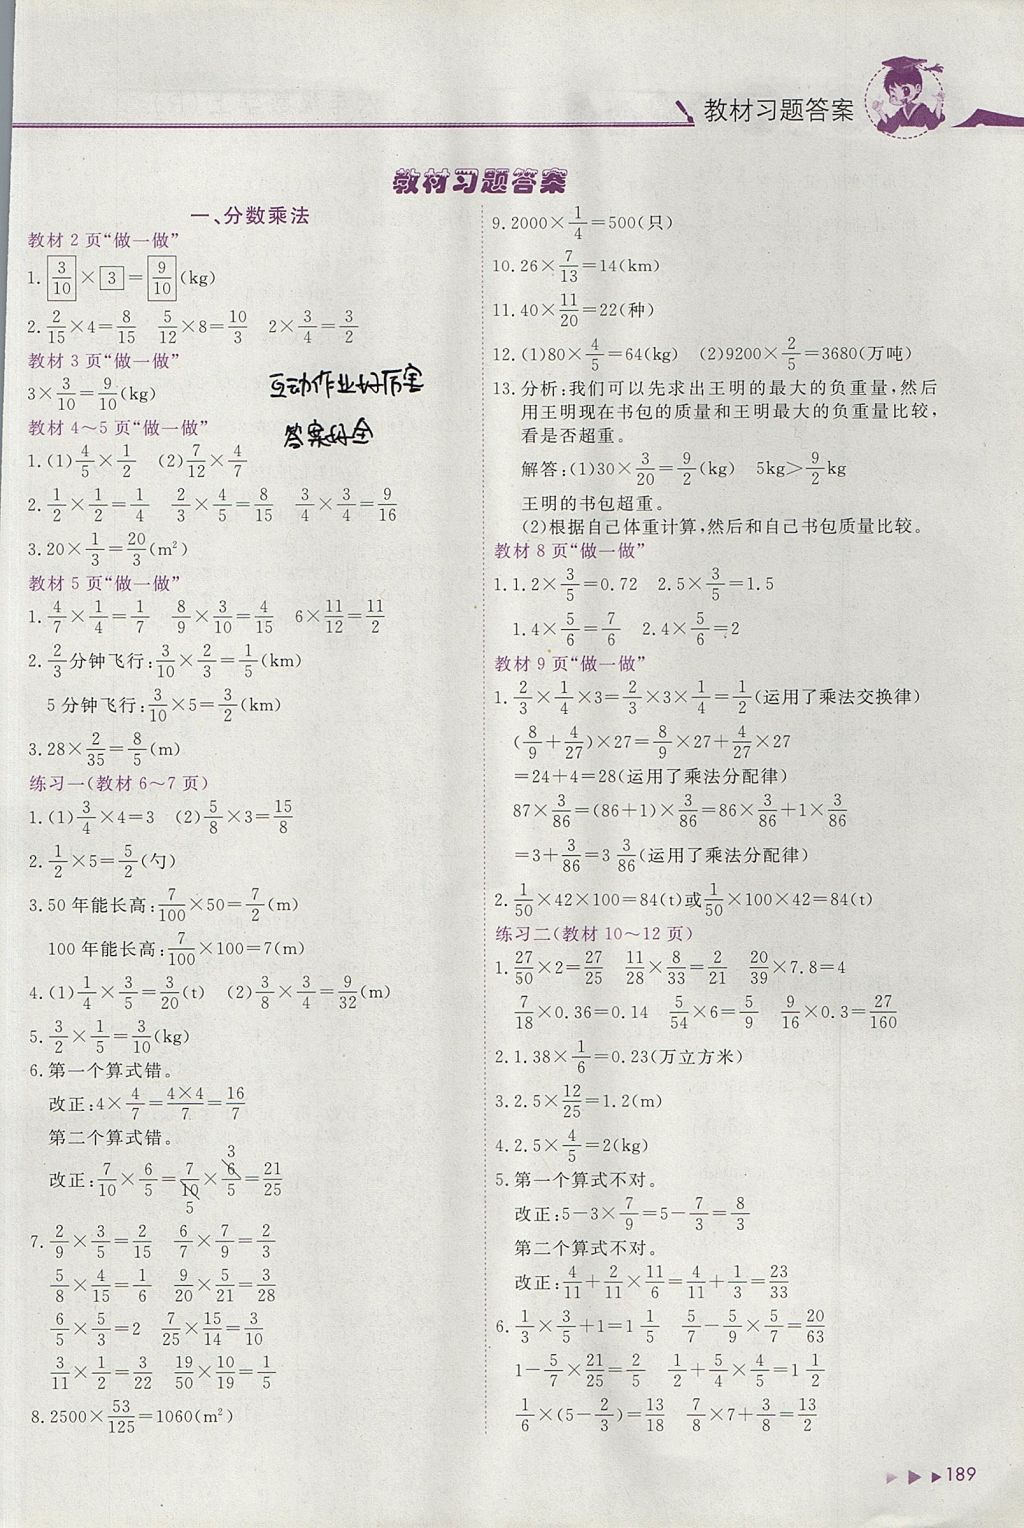 教材习题答案
教材习题答案
一、分数乘法
教材2页“做一做”
1. 3/10 × 3 = 9/10 (kg)
2. 2/15×4=8/15 5/12×8=10/3 2×3/4=3/2
教材3页“做一做”
3×3/10=9/10(kg)
互动作业好厉害
答案好全
教材4～5页“做一做”
1.(1)4/5×1/2 (2)7/12×4/7
2. 1/2×1/2=1/4 2/3×4/5=8/15 3/4×3/4=9/16
3.20×1/3=20/3(m²)
教材5页“做一做”
1. 4/7×1/4=1/7 8/9×3/10=4/15 6×11/12=11/2
2. 2/3分钟飞行:3/10×2/3=1/5(km)
5分钟飞行:3/10×5=3/2(km)
3.28×2/35=8/5(m)
练习一(教材6～7页)
1.(1)3/4×4=3 (2)5/8×3=15/8
2. 1/2×5=5/2(勺)
3.50年能长高:7/100×50=7/2(m)
100年能长高:7/100×100=7(m)
4.(1)1/4×3/5=3/20(t) (2)3/8×3/4=9/32(m)
5. 3/2×1/5=3/10(kg)
6.第一个算式错。
改正:4×4/7=4×4/7=16/7
第二个算式错。
3
改正:7/10×6/5=7/10×6/5=21/25
5
7. 2/9×3/5=2/15 6/7×7/9=2/3
5/8×4/15=1/6 9/20×5/21=3/28
6/5×5/3=2 7/25×15/14=3/10
3/11×1/2=3/22 19/50×10/19=1/5
8.2500×53/125=1060(m²)
9.2000×1/4=500(只)
10.26×7/13=14(km)
11.40×11/20=22(种)
12.(1)80×4/5=64(kg) (2)9200×2/5=3680(万吨)
13.分析:我们可以先求出王明的最大的负重量,然后
用王明现在书包的质量和王明最大的负重量比较,
看是否超重。
解答:(1)30×3/20=9/2(kg) 5kg>9/2kg
王明的书包超重。
(2)根据自己体重计算,然后和自己书包质量比较。
教材8页“做一做”
1.1.2×3/5=0.72 2.5×3/5=1.5
1.4×5/6=7/6 2.4×5/6=2
教材9页“做一做”
1. 2/3×1/4×3=2/3×3×1/4=1/2(运用了乘法交换律)
(8/9+4/27)×27=8/9×27+4/27×27
=24+4=28(运用了乘法分配律)
87×3/86=(86+1)×3/86=86×3/86+1×3/86
=3+3/86=3 3/86(运用了乘法分配律)
2. 1/50×42×100=84(t)或1/50×100×42=84(t)
练习二(教材10～12页)
1. 27/50×2=27/25 11/28×8/33=2/21 20/39×7.8=4
7/18×0.36=0.14 5/54×6=5/9 9/16×0.3=27/160
2.1.38×1/6=0.23(万立方米)
3.2.5×12/25=1.2(m)
4.2.5×4/5=2(kg)
5.第一个算式不对。
改正:5-3×7/9=5-7/3=8/3
第二个算式不对。
改正:4/11+2/11×11/6=4/11+1/3=23/33
6. 1/3×3/5+1=1 1/5 5/7-5/9×5/7=20/63
1-5/7×21/25=2/5 1/2+5/4×4/5=1 1/2
1/6×(5-2/3)=13/18 7/8×7+3/8=13/2
189